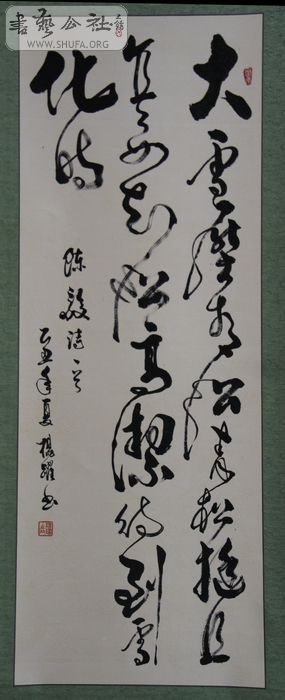 書藝公社
WWW.SHUFA.ORG
大雪壓青松青松挺且
直要知松高潔待到雪
化時
陳毅詩一首
丑年夏楊躍書